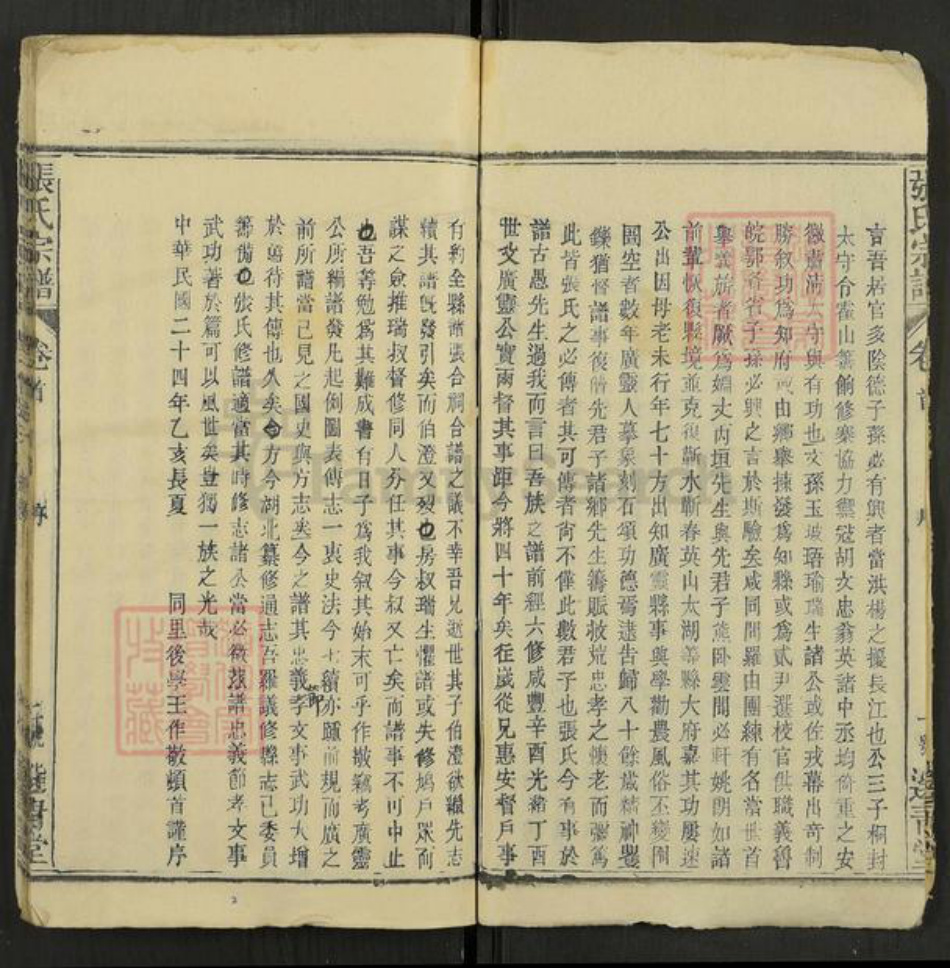 言吾居官多陰德子孫必有興者當洪楊之擾長江也公三子桐封
太守令霍山籌餉修寨協力禦寇胡文忠翁英諸中丞均倚重之安
徽肅清太守與有功也文孫玉坡珸瑜璣生諸公或佐戎幕出奇制
勝敘功爲知府或由鄉舉揀發爲知縣或爲貳尹選校官供職義魯
皖鄂澤名子孫必興之言於斯驗矣咸同間羅由團練有名當世首
舉義旂者厥爲媚丈丙垣先生與先君子熊卧雲間必軒姚朗如諸
前輩恢復縣境並克復蘄水蘄春英山太湖等縣大府嘉其功屢速
公出因母老未行年七十方出知廣靈縣事興學勸農風俗丕變囹
圄空者數年廣靈人摹象刻石頌功德焉逮告歸八十餘歲精神矍
鑠猶督譜事復偕先君子諸鄉先生籌賑救荒忠孝之性老而彌篤
此皆張氏之必傳者其可傳者尙不僅此數君子也張氏今有事於
譜古愚先生過我而言曰吾族之譜前經六修咸豐辛酉光緒丁酉
世父廣靈公實兩督其事距今將四十年矣往歲從兄惠安督戶事
有約全縣諸張合嗣合譜之議不幸吾兄逝世其子伯澄欲纘先志
續其譜旣發引矣而伯澄又歿也房叔瑞生懼譜或失修鳩戶衆而
謀之僉推瑞叔督修同人分任其事今叔又亡矣而譜事不可中止
也吾等勉爲其難成書有日子爲我叙其始末可乎作敬竊考廣靈
公所編諸發凡起例圖表傳志一衷史法今七續亦踵前規而廣之
前所譜當已見之國史與方志矣今之譜其忠義節孝文事武功大增
於舊待其傳也久矣今方今湖北纂修通志吾羅議修縣志已委員
籌備也張氏修譜適當其時修志諸公當必徵張譜忠義節孝文事
武功著於篇可以風世矣豈獨一族之光哉
中華民國二十四年乙亥長夏　同里後學王作敬頓首謹序
張氏宗譜
卷首
序
張氏宗譜
卷首
序